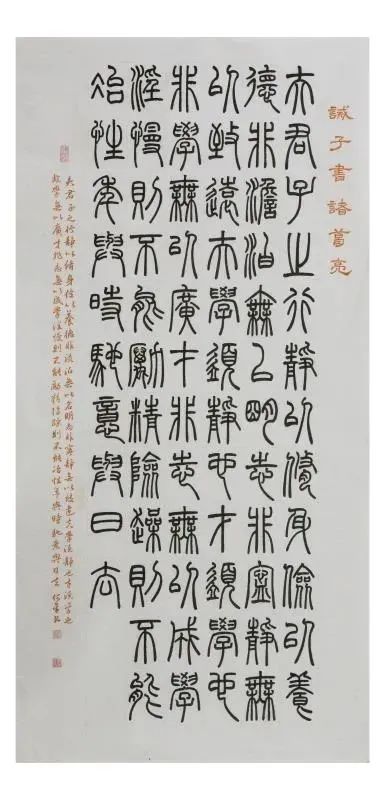 誡子書諸葛亮
夫君子之行靜以脩身儉以養
德非澹泊無以明志非寧靜無
以致遠夫學須靜也才須學也
非學無以廣才非志無以成學
淫慢則不能勵精險躁則不能
冶性年與時馳意與日去
夫君子之行靜以脩身儉以養德非澹泊無以明志非寧靜無以致遠夫學須靜也才須學也
非學無以廣才非志無以成學淫慢則不能勵精險躁則不能冶性年與時馳意與日去